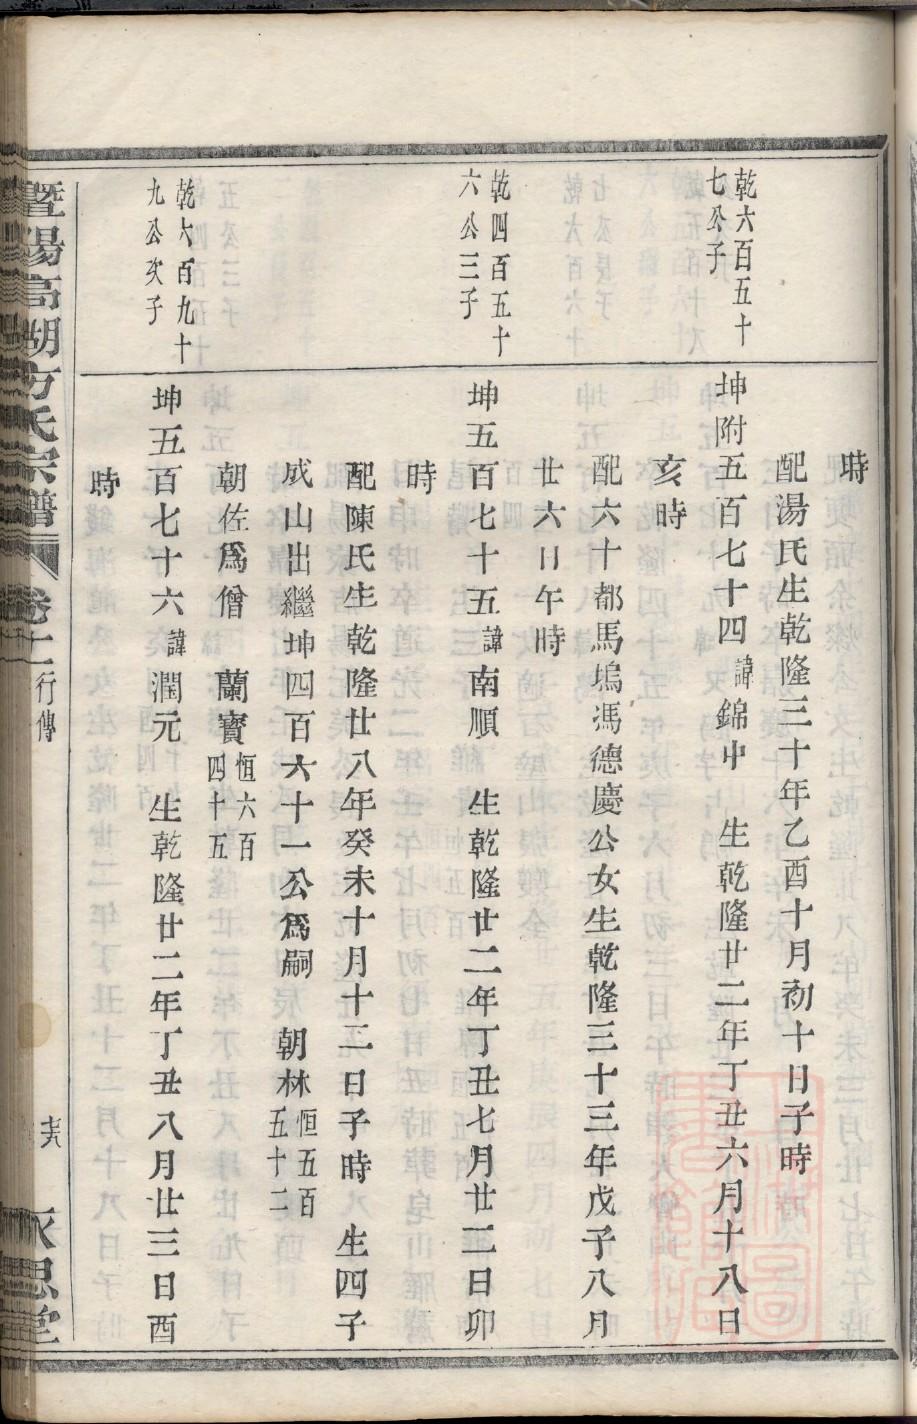 時
配湯氏生乾隆三十年乙酉十月初十日子時
乾六百五十
七公子
坤附五百七十四諱錦中　生乾隆廿二年丁丑六月十八日
亥時
配六十都馬塢馮德慶公女生乾隆三十三年戊子八月
廿六日午時
乾四百五十
六公三子
坤五百七十五諱南順　生乾隆廿二年丁丑七月廿二日卯
時
配陳氏生乾隆廿八年癸未十月十二日子時　生四子
成山出繼坤四百六十一公爲嗣　朝林恒五百五十二
朝佐爲僧　蘭寳恒六百四十五
乾六百九十
九公次子
坤五百七十六諱潤元　生乾隆廿二年丁丑八月廿三日酉
時
暨陽高湖方氏宗譜　卷十　行傳　永思堂